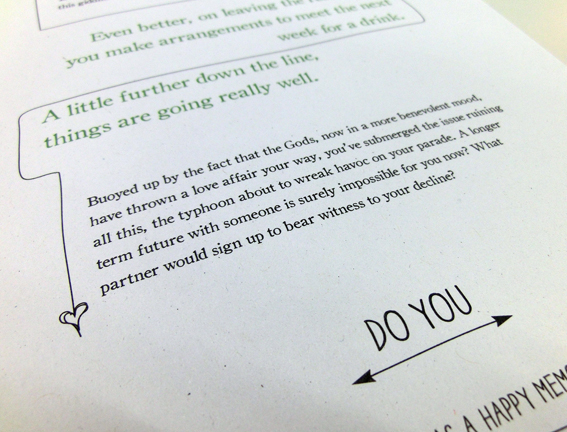 Even better, on leaving the
you make arrangements to meet the next
week for a drink.
A little further down the line,
things are going really well.
Buoyed up by the fact that the Gods, now in a more benevolent mood,
have thrown a love affair your way, you've submerged the issue ruining
all this, the typhoon about to wreak havoc on your parade. A longer
term future with someone is surely impossible for you now? What
partner would sign up to bear witness to your decline?
DO YOU
A HAPPY